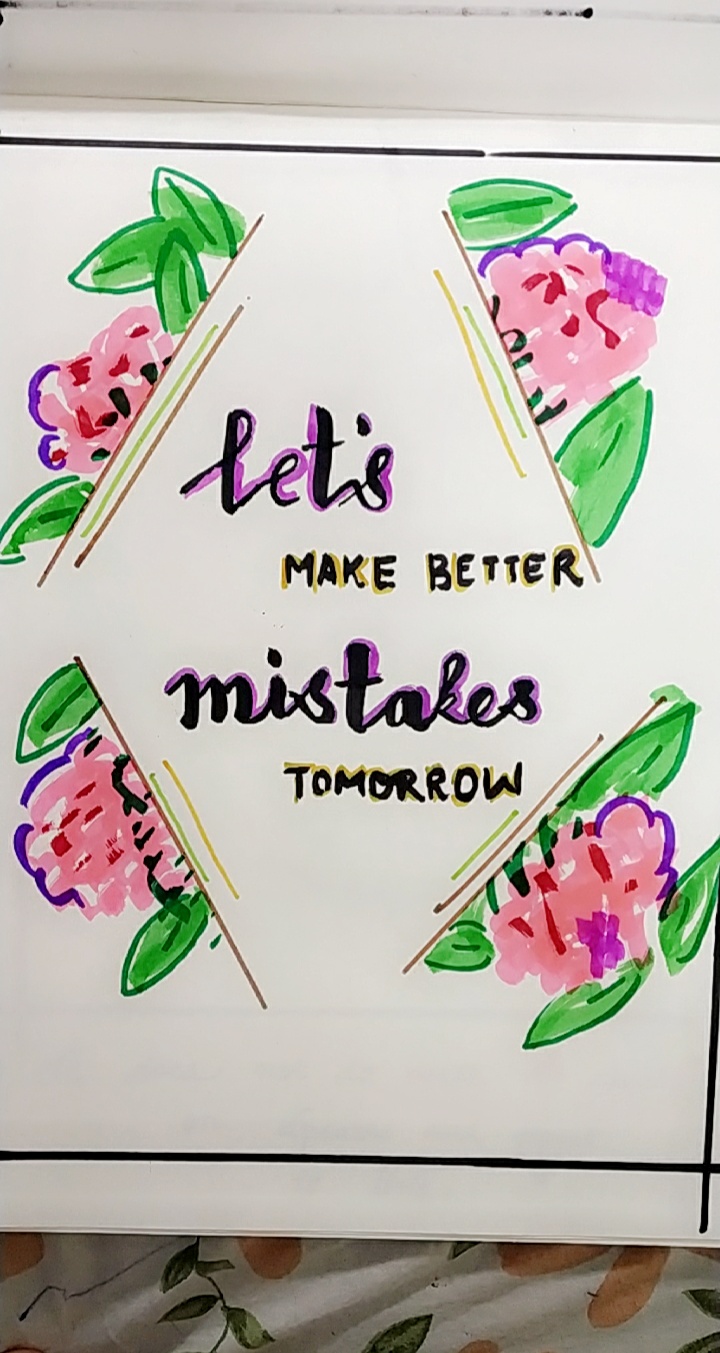 let's
MAKE BETTER
mistakes
TOMORROW